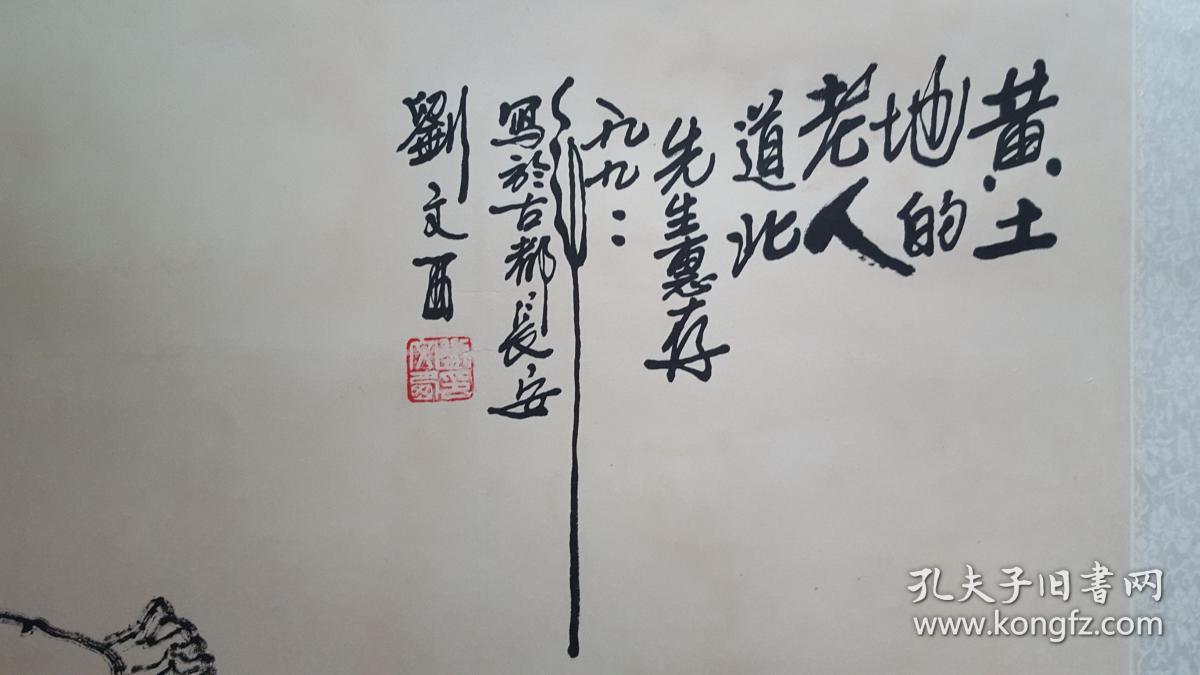 黄土
地的
老人
道北
先生惠存
一九九二
年
寫於古都長安
劉文西
孔夫子旧书网
www.kongfz.com